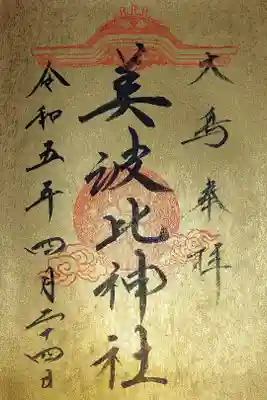 大鳥奉拝
美波比神社
令和五年四月二十四日